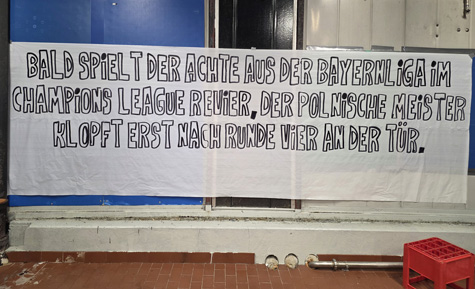 BALD SPIELT DER ACHTE AUS DER BAYERNLiGA iM
CHAMPiONS LEAGUE REViER, DER POLNiSCHE MEiSTER
KLOPFT ERST NACH RUNDE ViER AN DER TÜR.